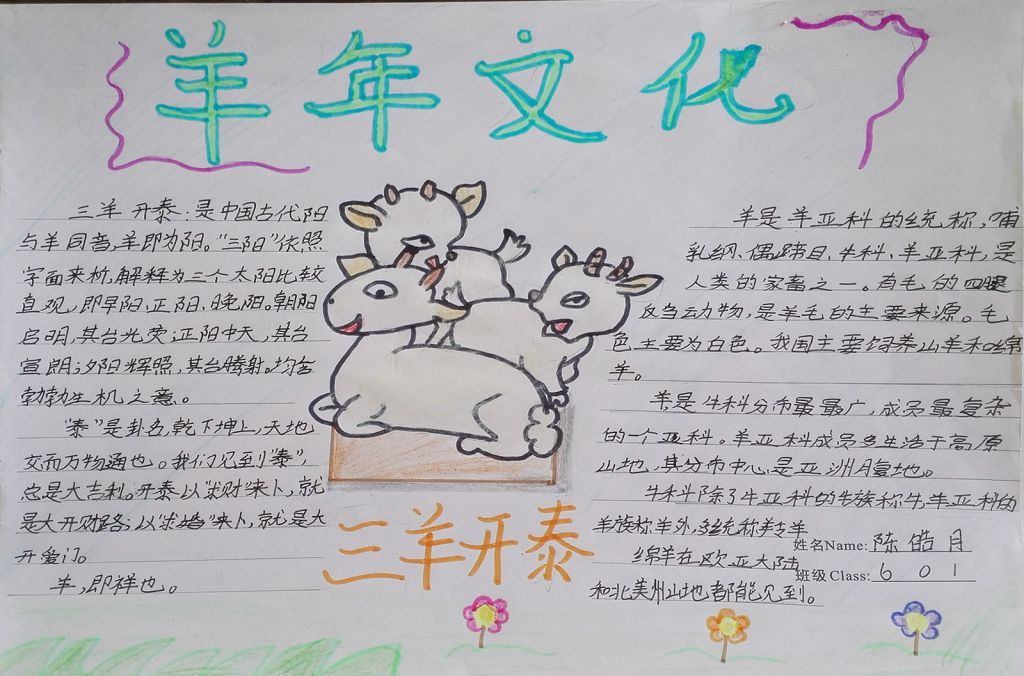 羊年文化
三羊开泰:是中国古代阳
与羊同音,羊即为阳。“三阳”依照
字面来析,解释为三个太阳比较
直观,即早阳、正阳、晚阳。朝阳
启明,其台光荧;正阳中天,其台
宣朗;夕阳辉照,其台腾射。均含
勃勃生机之意。
“泰”是卦名,乾下坤上,天地
交而万物通也。我们见到“泰”,
总是大吉利。开泰以“求财”来卜,就
是大开财路;以“求婚”来卜,就是大
开爱门。
羊,即祥也。
三羊开泰
羊是羊亚科的统称,哺
乳纲、偶蹄目、牛科、羊亚科,是
人类的家畜之一。有毛的四腿
反刍动物,是羊毛的主要来源。毛
色主要为白色。我国主要饲养山羊和绵
羊。
羊是牛科分布最最广,成员最复杂
的一个亚科。羊亚科成员多生活于高原
山地,其分布中心是亚洲月复地。
牛科除了牛亚科的牛族称牛,羊亚科的
羊族称羊外,统称羚羊
绵羊在欧亚大陆
和北美州山地都能见到。
姓名Name: 陈皓月
班级Class: 601